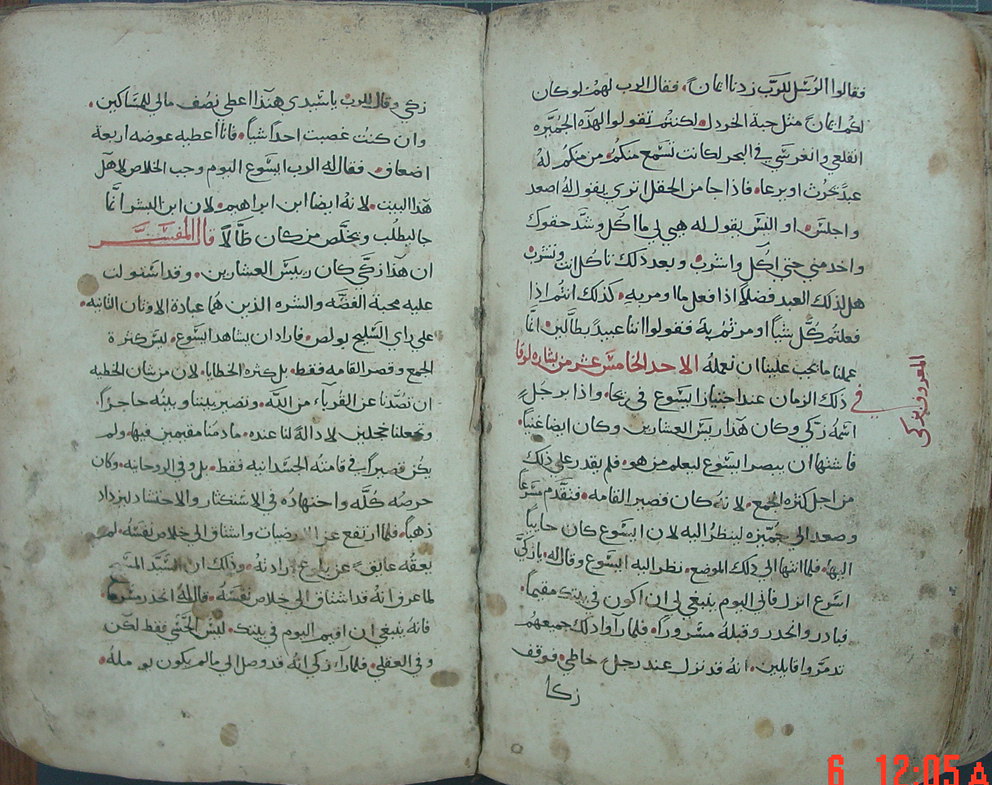 فقالوا الرسل للرب زدنا ايمانًا، فقال الرب لهم لو كان
لكم ايمانًا مثل حبة الخردل لكنتم تقولوا لهذه الجميزه
انقلعي وانغرسي في البحر لكانت تسمع منكم من منكم له
عبدٌ يحرث او يرعا فاذا جا من الحقل اترى يقول له اصعد
واجلس او اليس يقول له هيي لي ما اكل وشد حقوك
واخدمني حتى اكل واشرب وبعد ذلك تاكل انت وتشرب
هل لذلك العبد فضلًا اذا فعل ما اومر به كذلك انتم اذا
فعلتم كل شيًا اومرتم به فقولوا اننا عبيدٌ بطالين انما
عملنا ما يجب علينا ان نعمله الاحد الخامس عشر من بشاره لوقا
المعروف بزكى
في ذلك الزمان عند اجتياز ايسوع في ريحا واذا برجلٍ
اسمه زكي وكان هذا ريس العشارين وكان ايضا غنيًا
فاشتها ان يبصر ايسوع ليعلم من هو فلم يقدر على ذلك
من اجل كثرة الجمع لانه كان قصير القامه فتقدم مسرعًا
وصعد الى جميزه لينظر اليه لان ايسوع كان جاييًا
اليها فلما انتها الى ذلك الموضع نظر اليه ايسوع وقال له يا زكي
اسرع انزل فاني اليوم ينبغي لي ان اكون في بيتك مقيمًا
فبادر وانحدر وقبله مسرورًا فلما راوا ذلك جميعهم
تدمروا قايلين انه قد نزل عند رجل خاطي فوقف
زكا
زكي وقال للرب يا سيدي هنذا اعطي نصف مالي للمساكين
وان كنت غصبت احدًا شيًا فانا اعطيه عوضه اربعة
اضعاف فقال له الرب ايسوع اليوم وجب الخلاص لاهل
هذا البيت لانه ايضا ابن ابراهيم لان ابن البشر انما
جا ليطلب ويخلص من كان ضالًا قال المفسر
ان هذا زكي كان ريس العشارين وقد استولت
عليه محبة الفضه والشره الذين هما عبادة الاوثان الثانيه
على راي السليح بولص فاراد ان يشاهد ايسوع ليس كثرة
الجمع وقصر القامه فقط بل كثره الخطايا لان من شان الخطيه
ان تصدنا عن القرباء من الله وتصير بيننا وبينه حاجزًا
وتجعلنا خجلين لا دالة لنا عنده ما دمنا مقيمين فيها ولم
يكن قصيرًا في قامته الجسدانيه فقط بل وفي الروحانيه وكان
حرصه كله واجتهاده في الاستكثار والاحتشاد ليزداد
ذهبًا فلما ارتفع عن الارضيات واشتاق الى خلاص نفسه لم
يعقه عايق عن بلوغ ارادته وذلك ان السيد المسيح
لما عرف انه قد اشتاق الى خلاص نفسه قال له انحدر سرعًا
فانه ينبغي ان اقيم اليوم في بيتك ليس الحسي فقط لكن
وفي العقلي فلما راء زكي انه قد وصل الى ما لم يكون يومله
6 12:05